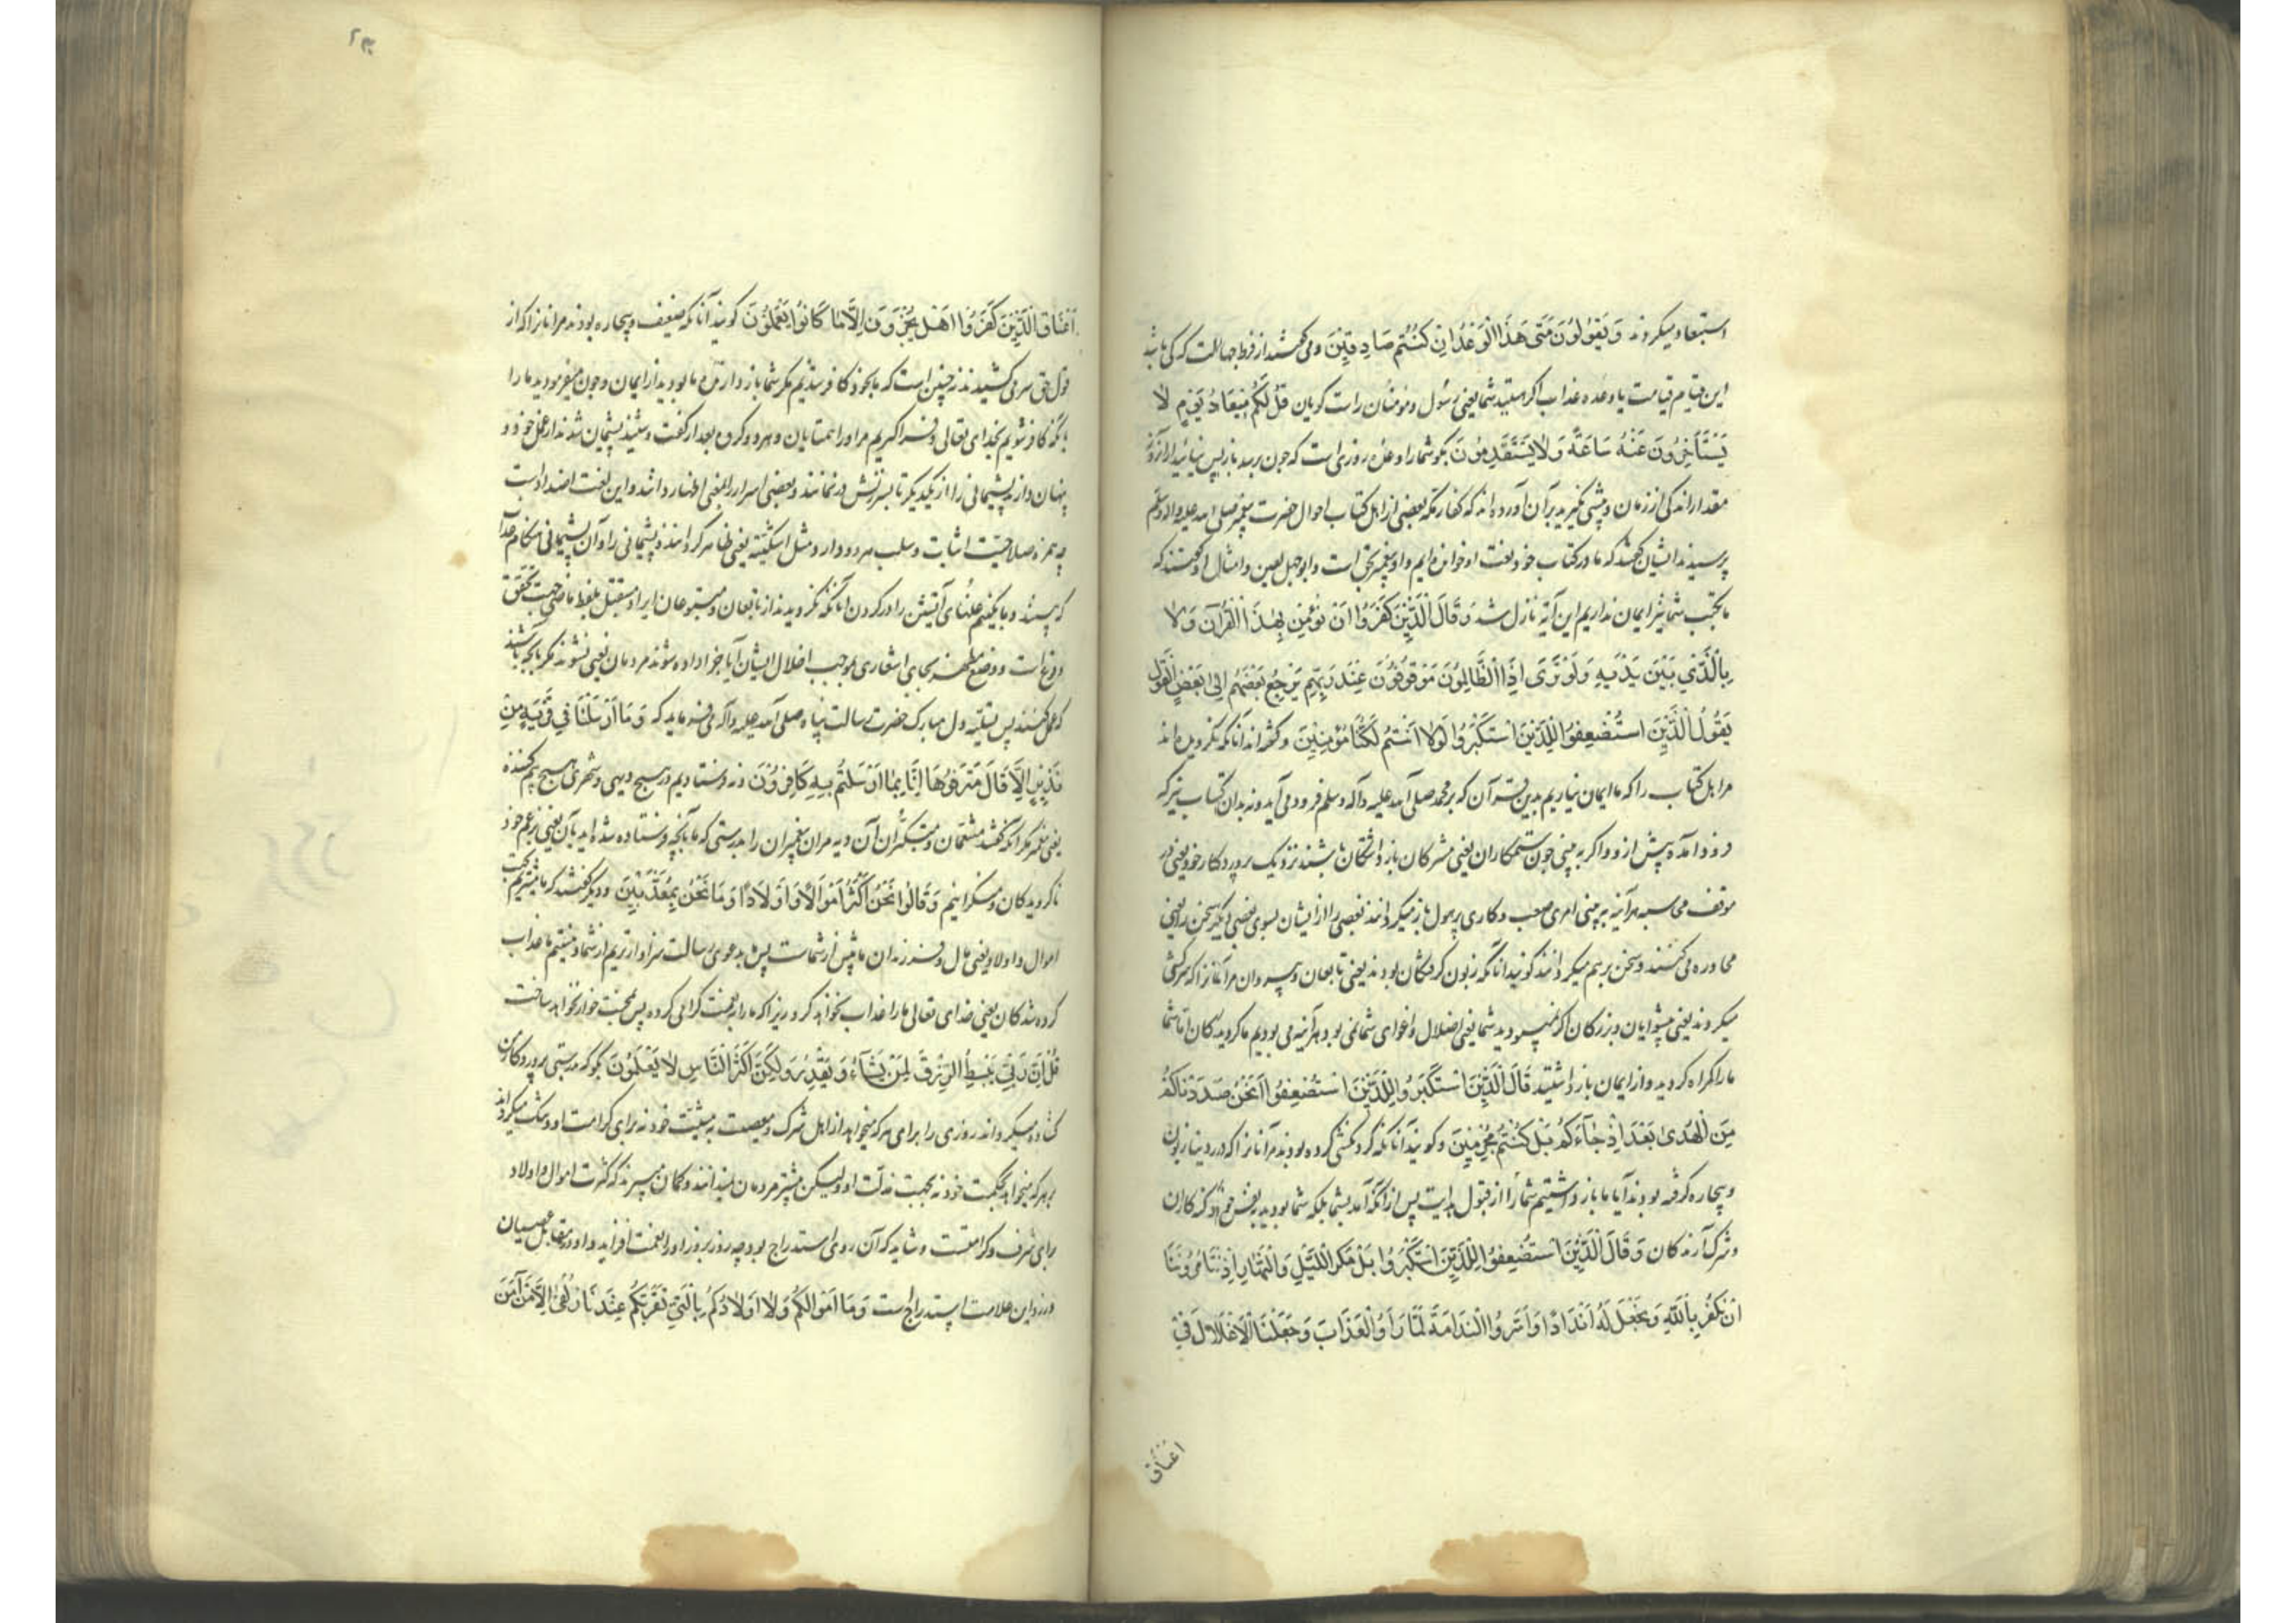 استبعاد میکردند وَيَقُولُونَ مَتَى هَذَا الْوَعْدُ اِنْ كُنْتُمْ صَادِقِيْنَ و می گفتند از فرط جهالت که کی باشد
این قیام قیامت یا وعده عذاب اکر هستید شما یعنی رسول و مؤمنان راست کویان قُلْ لَكُمْ مِيْعَادُ يَوْمٍ لَا
يَسْتَأْخِرُوْنَ عَنْهُ سَاعَةً وَلَا يَسْتَقْدِمُوْنَ بکو شما را وعده روزی است که چون برسد باز پس نیائید از آنروز
مقدار اندکی از زمان و پیشی نکیرید بر آن آورده اند که کفار مکه بعضی از اهل کتاب احوال حضرت پیغمبر صلی الله علیه واله وسلم
پرسیدند ایشان کفتند که ما در کتاب خود نعت او خوانده ایم و او پیغمبر بحق است و ابوجهل لعین و امثال او کفتند که
ما بکتب شما نیز ایمان نداریم این آیه نازل شد وَقَالَ الَّذِيْنَ كَفَرُوْا لَنْ نُؤْمِنَ بِهٰذَا الْقُرْآنِ وَلَا
بِالَّذِيْ بَيْنَ يَدَيْهِ وَلَوْ تَرَى اِذِ الظَّالِمُوْنَ مَوْقُوْفُوْنَ عِنْدَ رَبِّهِمْ يَرْجِعُ بَعْضُهُمْ اِلَى بَعْضٍ الْقَوْلَ
يَقُوْلُ الَّذِيْنَ اسْتُضْعِفُوْا لِلَّذِيْنَ اسْتَكْبَرُوْا لَوْلَا اَنْتُمْ لَكُنَّا مُؤْمِنِيْنَ و کفته اند آنانکه نکرویده اند
مر اهل کتاب را که ما ایمان نیاریم بدین قرآن که بر محمد صلی الله علیه وآله وسلم فرود می آید و نه بدان کتاب نیز که
فرود آمده پیش ازو و اکر به بینی چون ستمکاران یعنی مشرکان باز داشتکان باشند نزدیک پرورد کار خود یعنی در
موقف هر آینه به بینی امری صعب و کاری پر هول باز میکردانند بعضی از ایشان بسوی بعضی دیکر سخن را یعنی
محاوره می کنند و سخن بر هم میکردانند کویند آنانکه زبون کرفتکان بودند یعنی تابعان و پیروان مر آنانرا که سرکشی
میکردند یعنی پیشوایان و بزرکان اکر نمیبودید شما یعنی اضلال و اغوای شما نمی بود هر آینه می بودیم ما کرویدکان اما شما
ما را کمراه کردید و از ایمان باز داشتید قَالَ الَّذِيْنَ اسْتَكْبَرُوْا لِلَّذِيْنَ اسْتُضْعِفُوْا اَنَحْنُ صَدَدْنَاكُمْ
مِنَ الْهُدٰى بَعْدَ اِذْ جَاءَكُمْ بَلْ كُنْتُمْ مُجْرِمِيْنَ و کویند آنانکه کردنکشی کرده بودند مر آنانرا که در دنیا زبون
و بیچاره کرفته بودند آیا ما باز داشتیم شما را از قبول هدایت پس از آنکه آمد بشما بلکه شما بودید بنفس خود کنه کاران
و شرک آرندکان وَقَالَ الَّذِيْنَ اسْتُضْعِفُوْا لِلَّذِيْنَ اسْتَكْبَرُوْا بَلْ مَكْرُ اللَّيْلِ وَالنَّهَارِ اِذْ تَأْمُرُوْنَنَا
اَنْ نَكْفُرَ بِاللّٰهِ وَنَجْعَلَ لَهُ اَنْدَادًا وَاَسَرُّوا النَّدَامَةَ لَمَّا رَاَوُا الْعَذَابَ وَجَعَلْنَا الْاَغْلَالَ فِيْ
اعناق
اَعْنَاقِ الَّذِيْنَ كَفَرُوْا هَلْ يُجْزَوْنَ اِلَّا مَا كَانُوْا يَعْمَلُوْنَ کویند آنانکه ضعیف و بیچاره بودند مر آنانرا که از
قول حق سر می کشیدند نه چنین است که ما بخود کافر شدیم مکر شما باز دارنده ما بودید از ایمان و چون میفرمودید ما را
بآنکه کافر شویم بخدای تعالی و فرا کیریم مر او را همتایان و هر دو کروه بعد از کفت و شنید پشیمان شدند از عمل خود و
پنهان دارند پشیمانی را از یکدیکر تا بسرزنش در نمانند و بعضی اسرار را بمعنی اظهار داشته و این لغت اضداد است
چه همزه صلاحیت اثبات و سلب هر دو دارد و مثل اشکیته یعنی ظاهر کردانند پشیمانی را و آن پشیمانی هنکام عذاب
که بینند و ما بیفکنیم غلهای آتشین را در کردن آنانکه نکرویدند از تابعان و متبوعان ایراد مستقبل بلفظ ماضی جهت تحقق
وقوع است و وضع مظهر بجای اشعار بموجب اضلال ایشان آیا جزا داده شوند مردمان یعنی نشوند مکر بآنچه باشند
که عمل کنند پس بتسلیه دل مبارک حضرت رسالت پناه صلی الله علیه وآله می فرماید که وَمَا اَرْسَلْنَا فِيْ قَرْيَةٍ مِنْ
نَذِيْرٍ اِلَّا قَالَ مُتْرَفُوْهَا اِنَّا بِمَا اُرْسِلْتُمْ بِهِ كَافِرُوْنَ و نه فرستادیم در هیچ دیهی و شهری هیچ بیم کننده
یعنی پیغمبر مکر آنکه کفتند متنعمان و متکبران آن دیه مر آن پیغمبران را بدرستی که ما بآنچه فرستاده شده اید بآن یعنی بزعم خود
ناکرویدکان و منکرانیم وَقَالُوْا نَحْنُ اَكْثَرُ اَمْوَالًا وَاَوْلَادًا وَمَا نَحْنُ بِمُعَذَّبِيْنَ و دیکر کفتند که ما بیشتریم بحسب
اموال و اولاد یعنی مال و فرزندان ما بیش از شماست پس بدعوی رسالت سزاوارتریم از شما و نیستیم ما عذاب
کرده شدکان یعنی خدای تعالی ما را عذاب نخواهد کرد زیرا که ما را بنعمت کرامی کرده پس بمحنت خوار نخواهد ساخت
قُلْ اِنَّ رَبِّيْ يَبْسُطُ الرِّزْقَ لِمَنْ يَشَاءُ وَيَقْدِرُ وَلٰكِنَّ اَكْثَرَ النَّاسِ لَا يَعْلَمُوْنَ بکو که بدرستی پروردکار من
کشاده میکرداند روزی را برای هر که میخواهد از اهل شرک و معصیت بمشیت خود نه برای کرامت او و تنک میکرداند
بر هر که میخواهد بحکمت خود نه بجهت مذلت او ولیکن بیشتر مردمان نمیدانند و کمان میبرند که کثرت اموال و اولاد
برای شرف و کرامتست و شاید که آن روی استدراج بود چه روز بروز او را نعمت افزاید و او در مقابل عصیان
ورزد و این علامت استدراج است وَمَا اَمْوَالُكُمْ وَلَا اَوْلَادُكُمْ بِالَّتِيْ تُقَرِّبُكُمْ عِنْدَنَا زُلْفٰى اِلَّا مَنْ اٰمَنَ